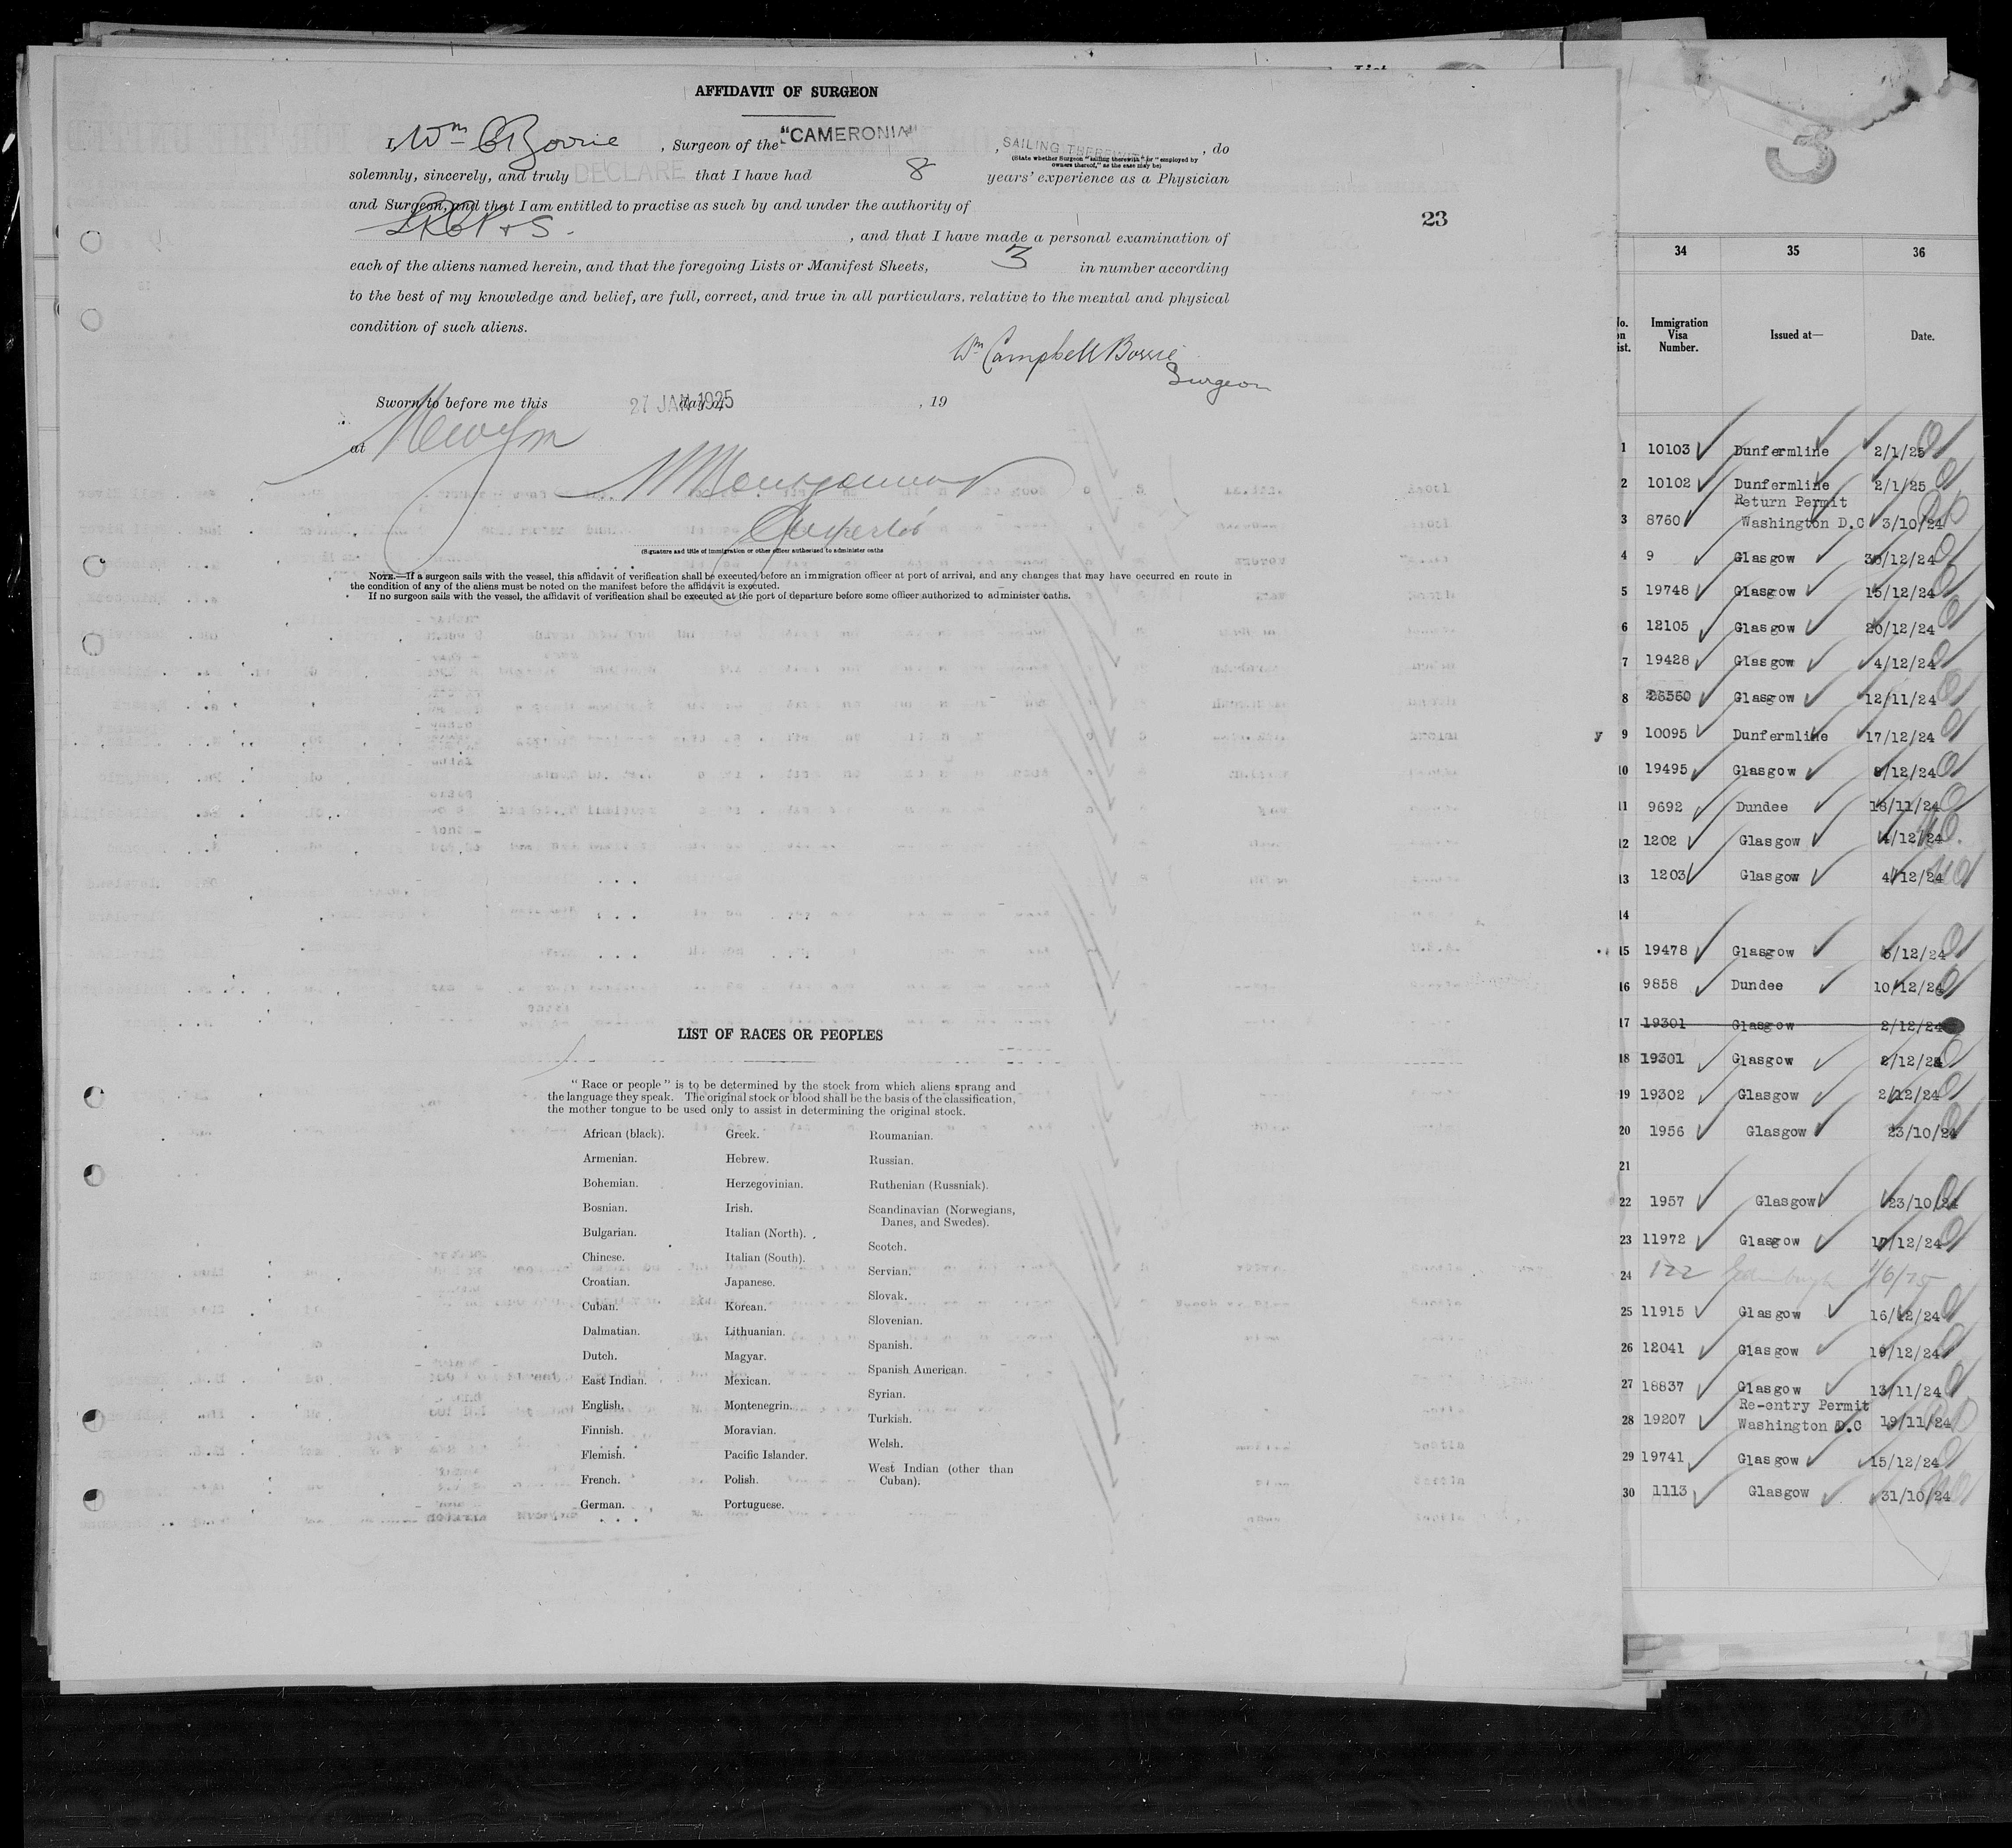 AFFIDAVIT OF SURGEON
I, Wm C Borrie, Surgeon of the "CAMERONIA", SAILING THEREWITH, do
(State whether Surgeon "sailing therewith" or "employed by
owners thereof," as the case may be)
solemnly, sincerely, and truly DECLARE that I have had 8 years' experience as a Physician
and Surgeon, and that I am entitled to practise as such by and under the authority of
LRCP & S. , and that I have made a personal examination of
each of the aliens named herein, and that the foregoing Lists or Manifest Sheets, 3 in number according
to the best of my knowledge and belief, are full, correct, and true in all particulars, relative to the mental and physical
condition of such aliens.
Wm Campbell Borrie
Surgeon
Sworn to before me this 27 JAN 1925 day of , 19
at
(Signature and title of immigration or other officer authorized to administer oaths
NOTE.—If a surgeon sails with the vessel, this affidavit of verification shall be executed before an immigration officer at port of arrival, and any changes that may have occurred en route in
the condition of any of the aliens must be noted on the manifest before the affidavit is executed.
If no surgeon sails with the vessel, the affidavit of verification shall be executed at the port of departure before some officer authorized to administer oaths.
23
LIST OF RACES OR PEOPLES
"Race or people" is to be determined by the stock from which aliens sprang and
the language they speak. The original stock or blood shall be the basis of the classification,
the mother tongue to be used only to assist in determining the original stock.
African (black).
Armenian.
Bohemian.
Bosnian.
Bulgarian.
Chinese.
Croatian.
Cuban.
Dalmatian.
Dutch.
East Indian.
English.
Finnish.
Flemish.
French.
German.
Greek.
Hebrew.
Herzegovinian.
Irish.
Italian (North).
Italian (South).
Japanese.
Korean.
Lithuanian.
Magyar.
Mexican.
Montenegrin.
Moravian.
Pacific Islander.
Polish.
Portuguese.
Roumanian.
Russian.
Ruthenian (Russniak).
Scandinavian (Norwegians,
Danes, and Swedes).
Scotch.
Servian.
Slovak.
Slovenian.
Spanish.
Spanish American.
Syrian.
Turkish.
Welsh.
West Indian (other than
Cuban).
3
34 35 36
Immigration
Visa
Number.
Issued at—
Date.
1 10103 Dunfermline 2/1/25
2 10102 Dunfermline 2/1/25
Return Permit
3 8760 Washington D.C 3/10/24
4 9 Glasgow 30/12/24
5 19748 Glasgow 15/12/24
6 12105 Glasgow 20/12/24
7 19428 Glasgow 4/12/24
8 Glasgow 12/11/24
y 9 10095 Dunfermline 17/12/24
10 19495 Glasgow 8/12/24
11 9692 Dundee 18/11/24
12 1202 Glasgow 4/12/24
13 1203 Glasgow 4/12/24
14
15 19478 Glasgow 5/12/24
16 9858 Dundee 10/12/24
17 19301 Glasgow 2/12/24
18 19301 Glasgow 2/12/24
19 19302 Glasgow 2/12/24
20 1956 Glasgow 23/10/24
21
22 1957 Glasgow 23/10/24
23 11972 Glasgow 17/12/24
24 122 Edinburgh
25 11915 Glasgow 16/12/24
26 12041 Glasgow 19/12/24
27 18837 Glasgow 13/11/24
Re-entry Permit
28 19207 Washington D.C 19/11/24
29 19741 Glasgow 15/12/24
30 1113 Glasgow 31/10/24